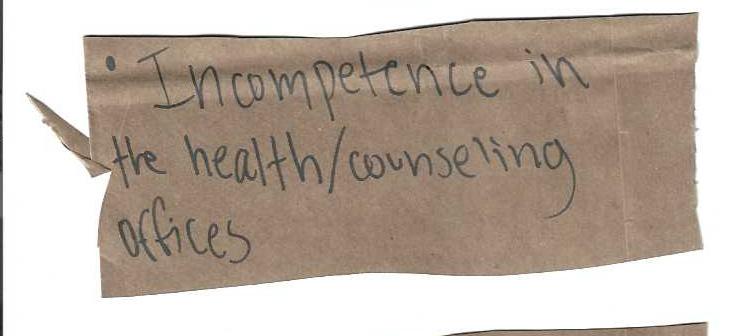 • Incompetence in
the health/counseling
offices